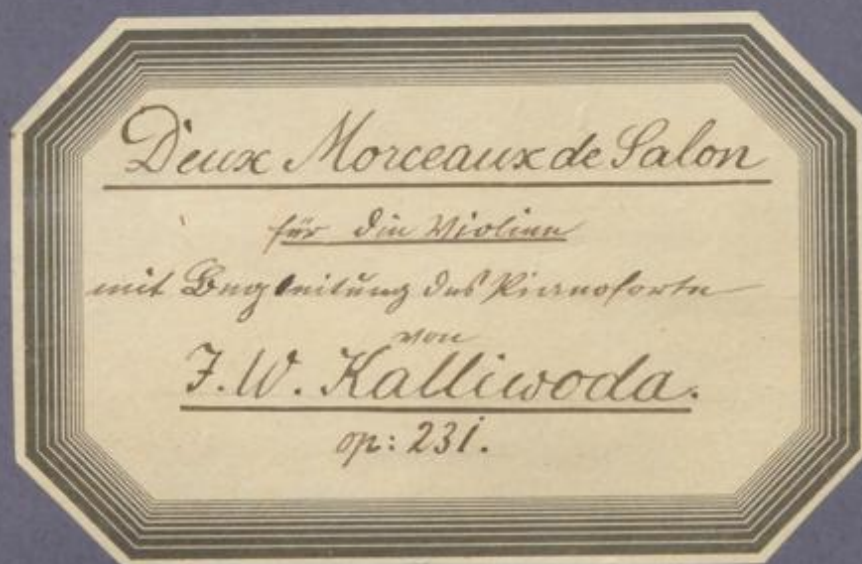 Deux Morceaux de Salon
für die Violine
mit Begleitung des Pianoforte
von
J. W. Kalliwoda.
op: 231.